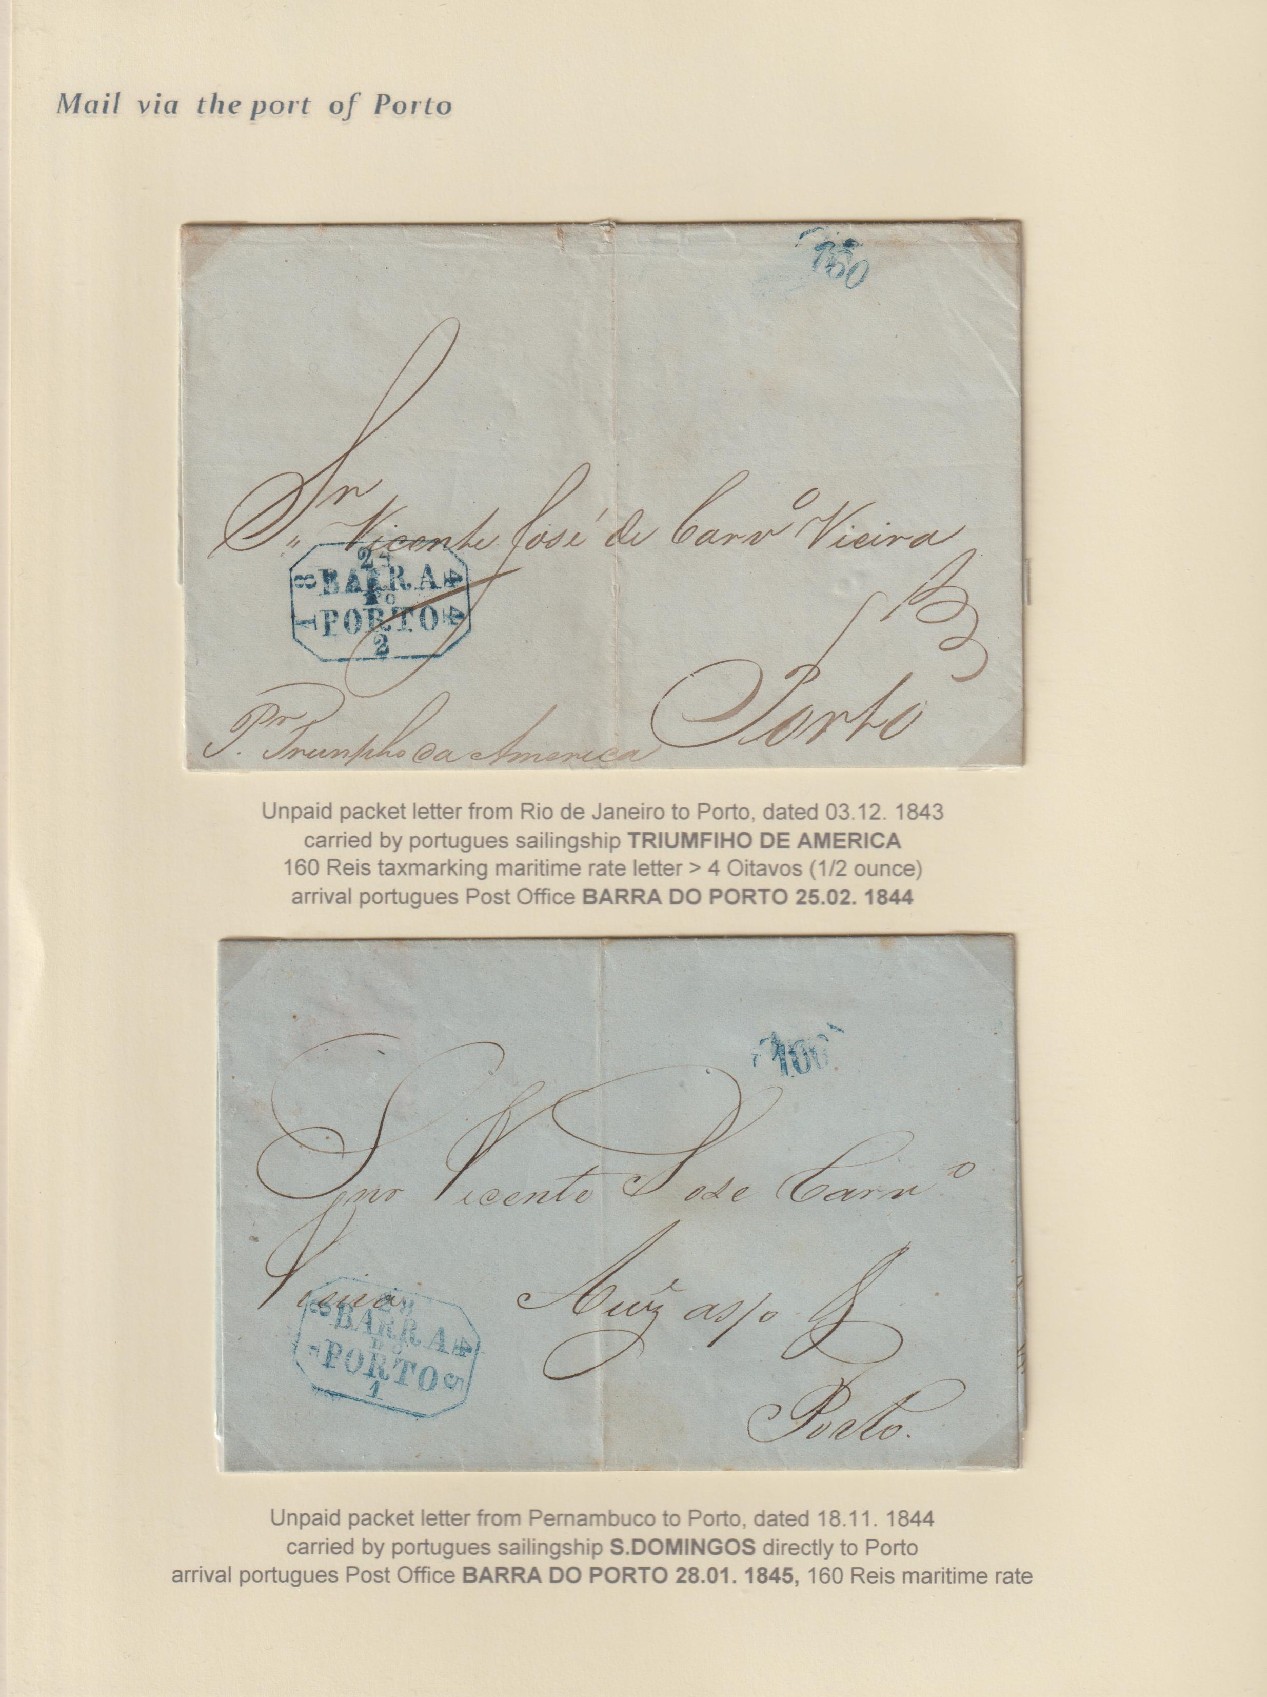 Mail via the port of Porto
160
Snr
Vicente José de Carvº Vieira
24
BARRA
DO
PORTO
2
1 8 4 4
Porto
Pr Triunpho da America
Unpaid packet letter from Rio de Janeiro to Porto, dated 03.12. 1843
carried by portugues sailingship TRIUMFIHO DE AMERICA
160 Reis taxmarking maritime rate letter > 4 Oitavos (1/2 ounce)
arrival portugues Post Office BARRA DO PORTO 25.02. 1844
Snr Vicente Jose Carvº
Vieira
28
BARRA
DO
PORTO
1
1 8 4 5
Porto.
Unpaid packet letter from Pernambuco to Porto, dated 18.11. 1844
carried by portugues sailingship S.DOMINGOS directly to Porto
arrival portugues Post Office BARRA DO PORTO 28.01. 1845, 160 Reis maritime rate